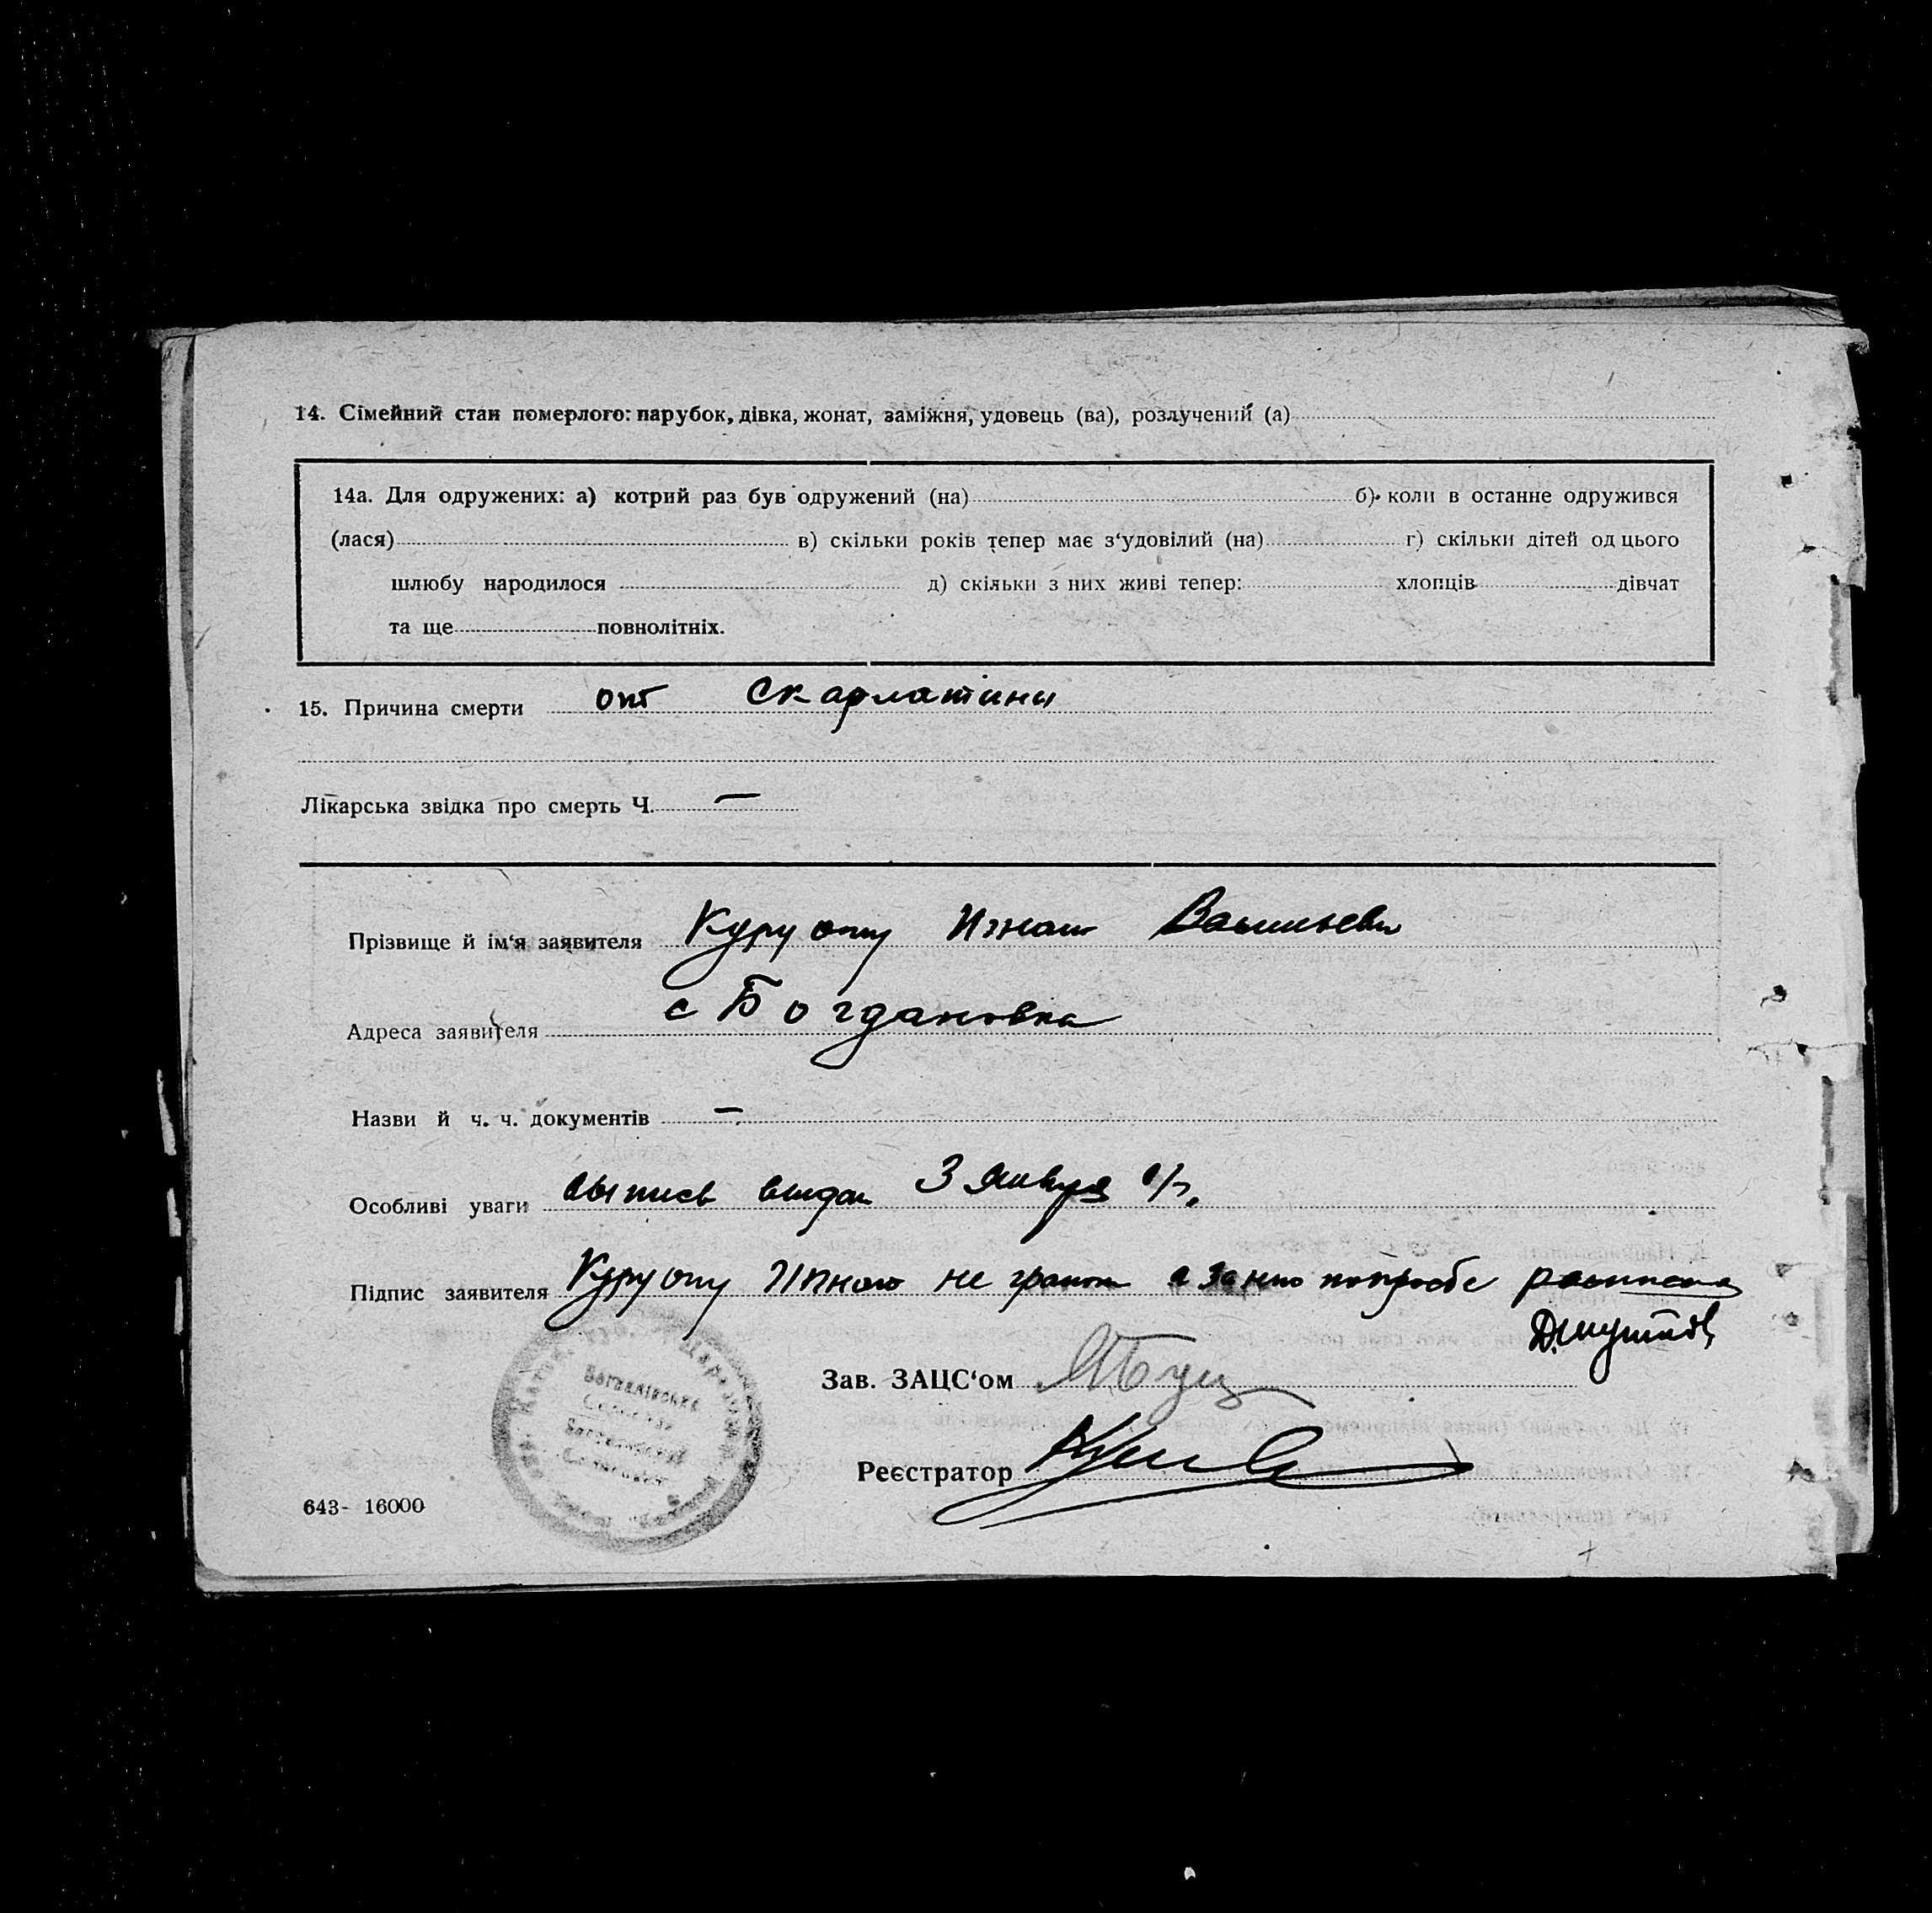 14. Сімейний стан померлого: парубок, дівка, жонат, заміжня, удовець (ва), розлучений (а)
14а. Для одружених: а) котрий раз був одружений (на) б) коли в останне одружився
(лася) в) скільки років тепер має з‘удовілий (на) г) скільки дітей од цього
шлюбу народилося д) скільки з них живі тепер: хлопців дівчат
та ще повнолітніх.
15. Причина смерти от Скарлатины
Лікарська звідка про смерть Ч. —
Прізвище й ім‘я заявителя Васильеви
Адреса заявителя с Богдановка
Назви й ч. ч. документів —
Особливі уваги выпись выдан 3 Января
Підпис заявителя не грамот попросбе
Зав. ЗАЦС‘ом
Реєстратор
643- 16000